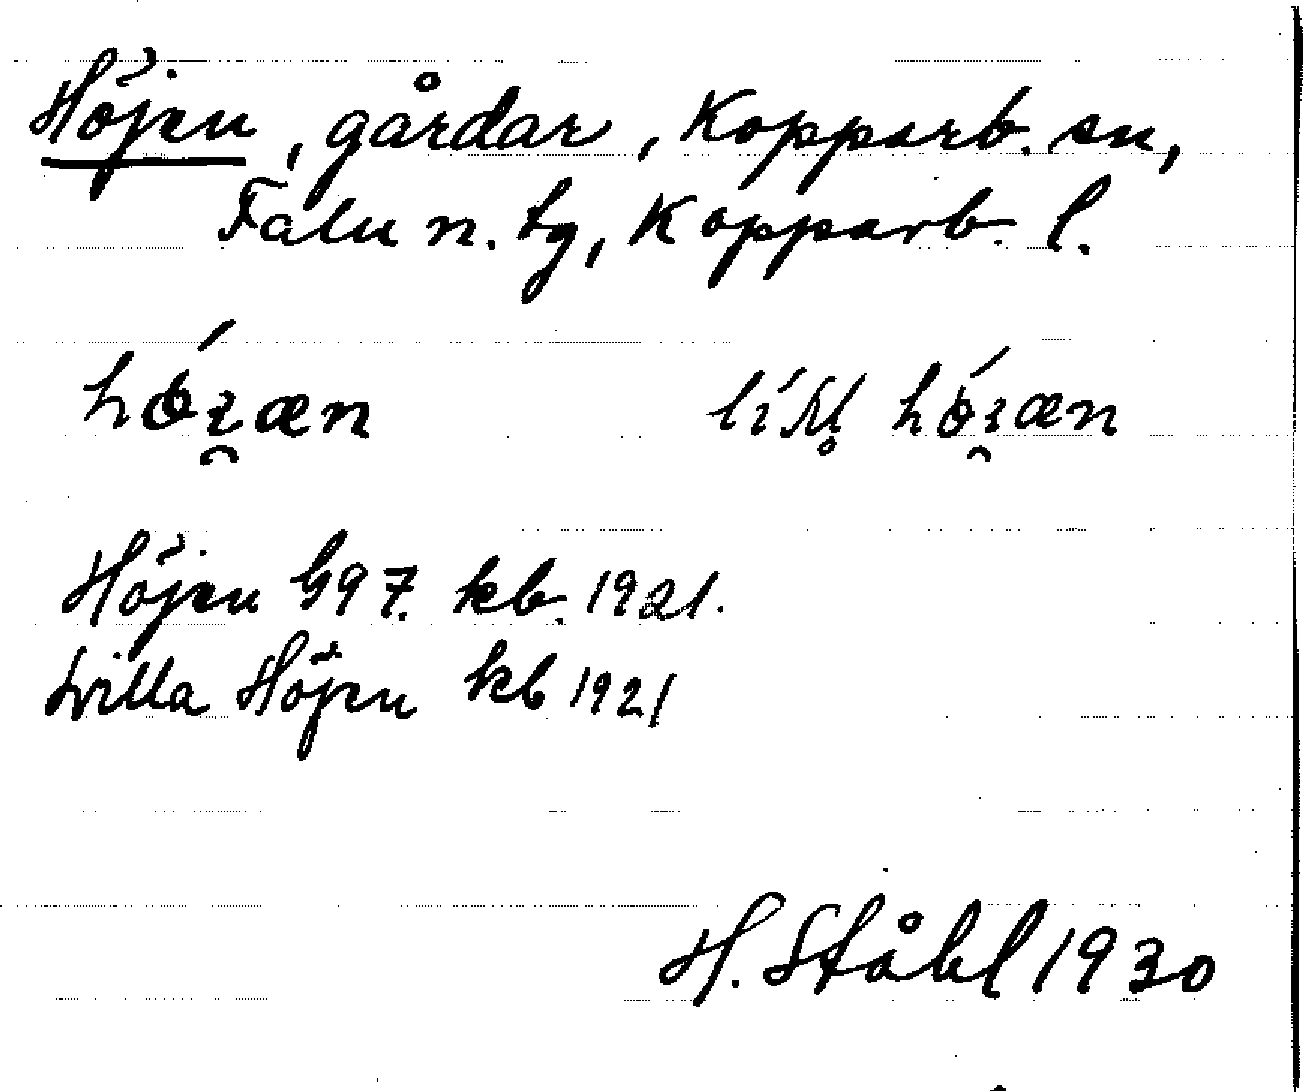 Höjen, gårdar, Kopparb. sn,
Falu n. tg, Kopparb. l.
Höjen G97. kb. 1921.
Lvilla Höjen kb 1921
H. Ståhl 1930